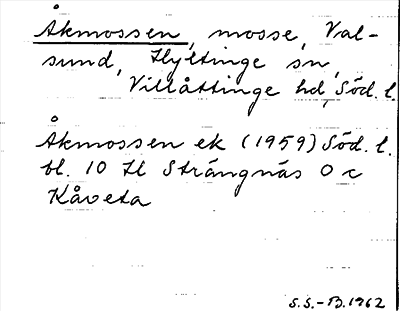 Åkmossen, mosse, Val-
sund, Hyltinge sn,
Villåttinge hd, Söd. l.
Åkmossen ek (1959) Söd. l.
bl. 10 H Strängnäs O c
Kåveta
S.S.-B. 1962